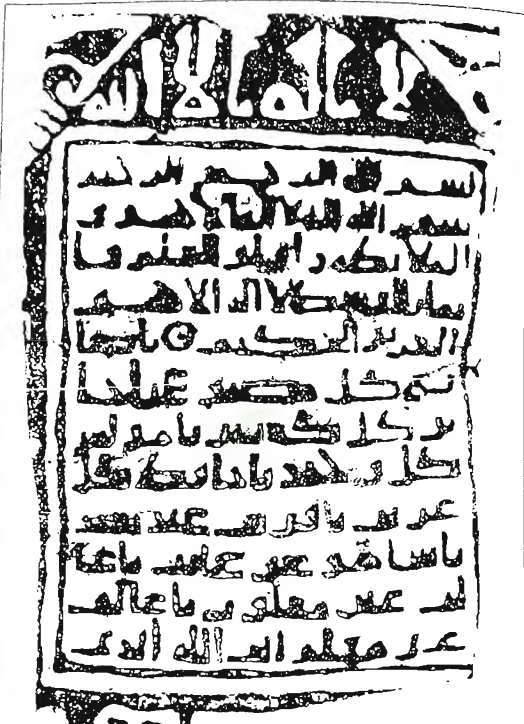 لا اله الا الله
بسم الله الرحمن الرحيم
شهد الله انه لا اله الا هو و
الملائكه و اولوا العلم قا
ئما بالقسط لا اله الا هو
العزيز الحكيم يا صا
نع كل يا جا
بر كل كسير يا مونس
كل وحيد يا صاحب كل
غريب يا قريب غير بعيد
يا شاهد غير غائب يا غا
لب غير مغلوب يا عالم
غير معلم الله الذى